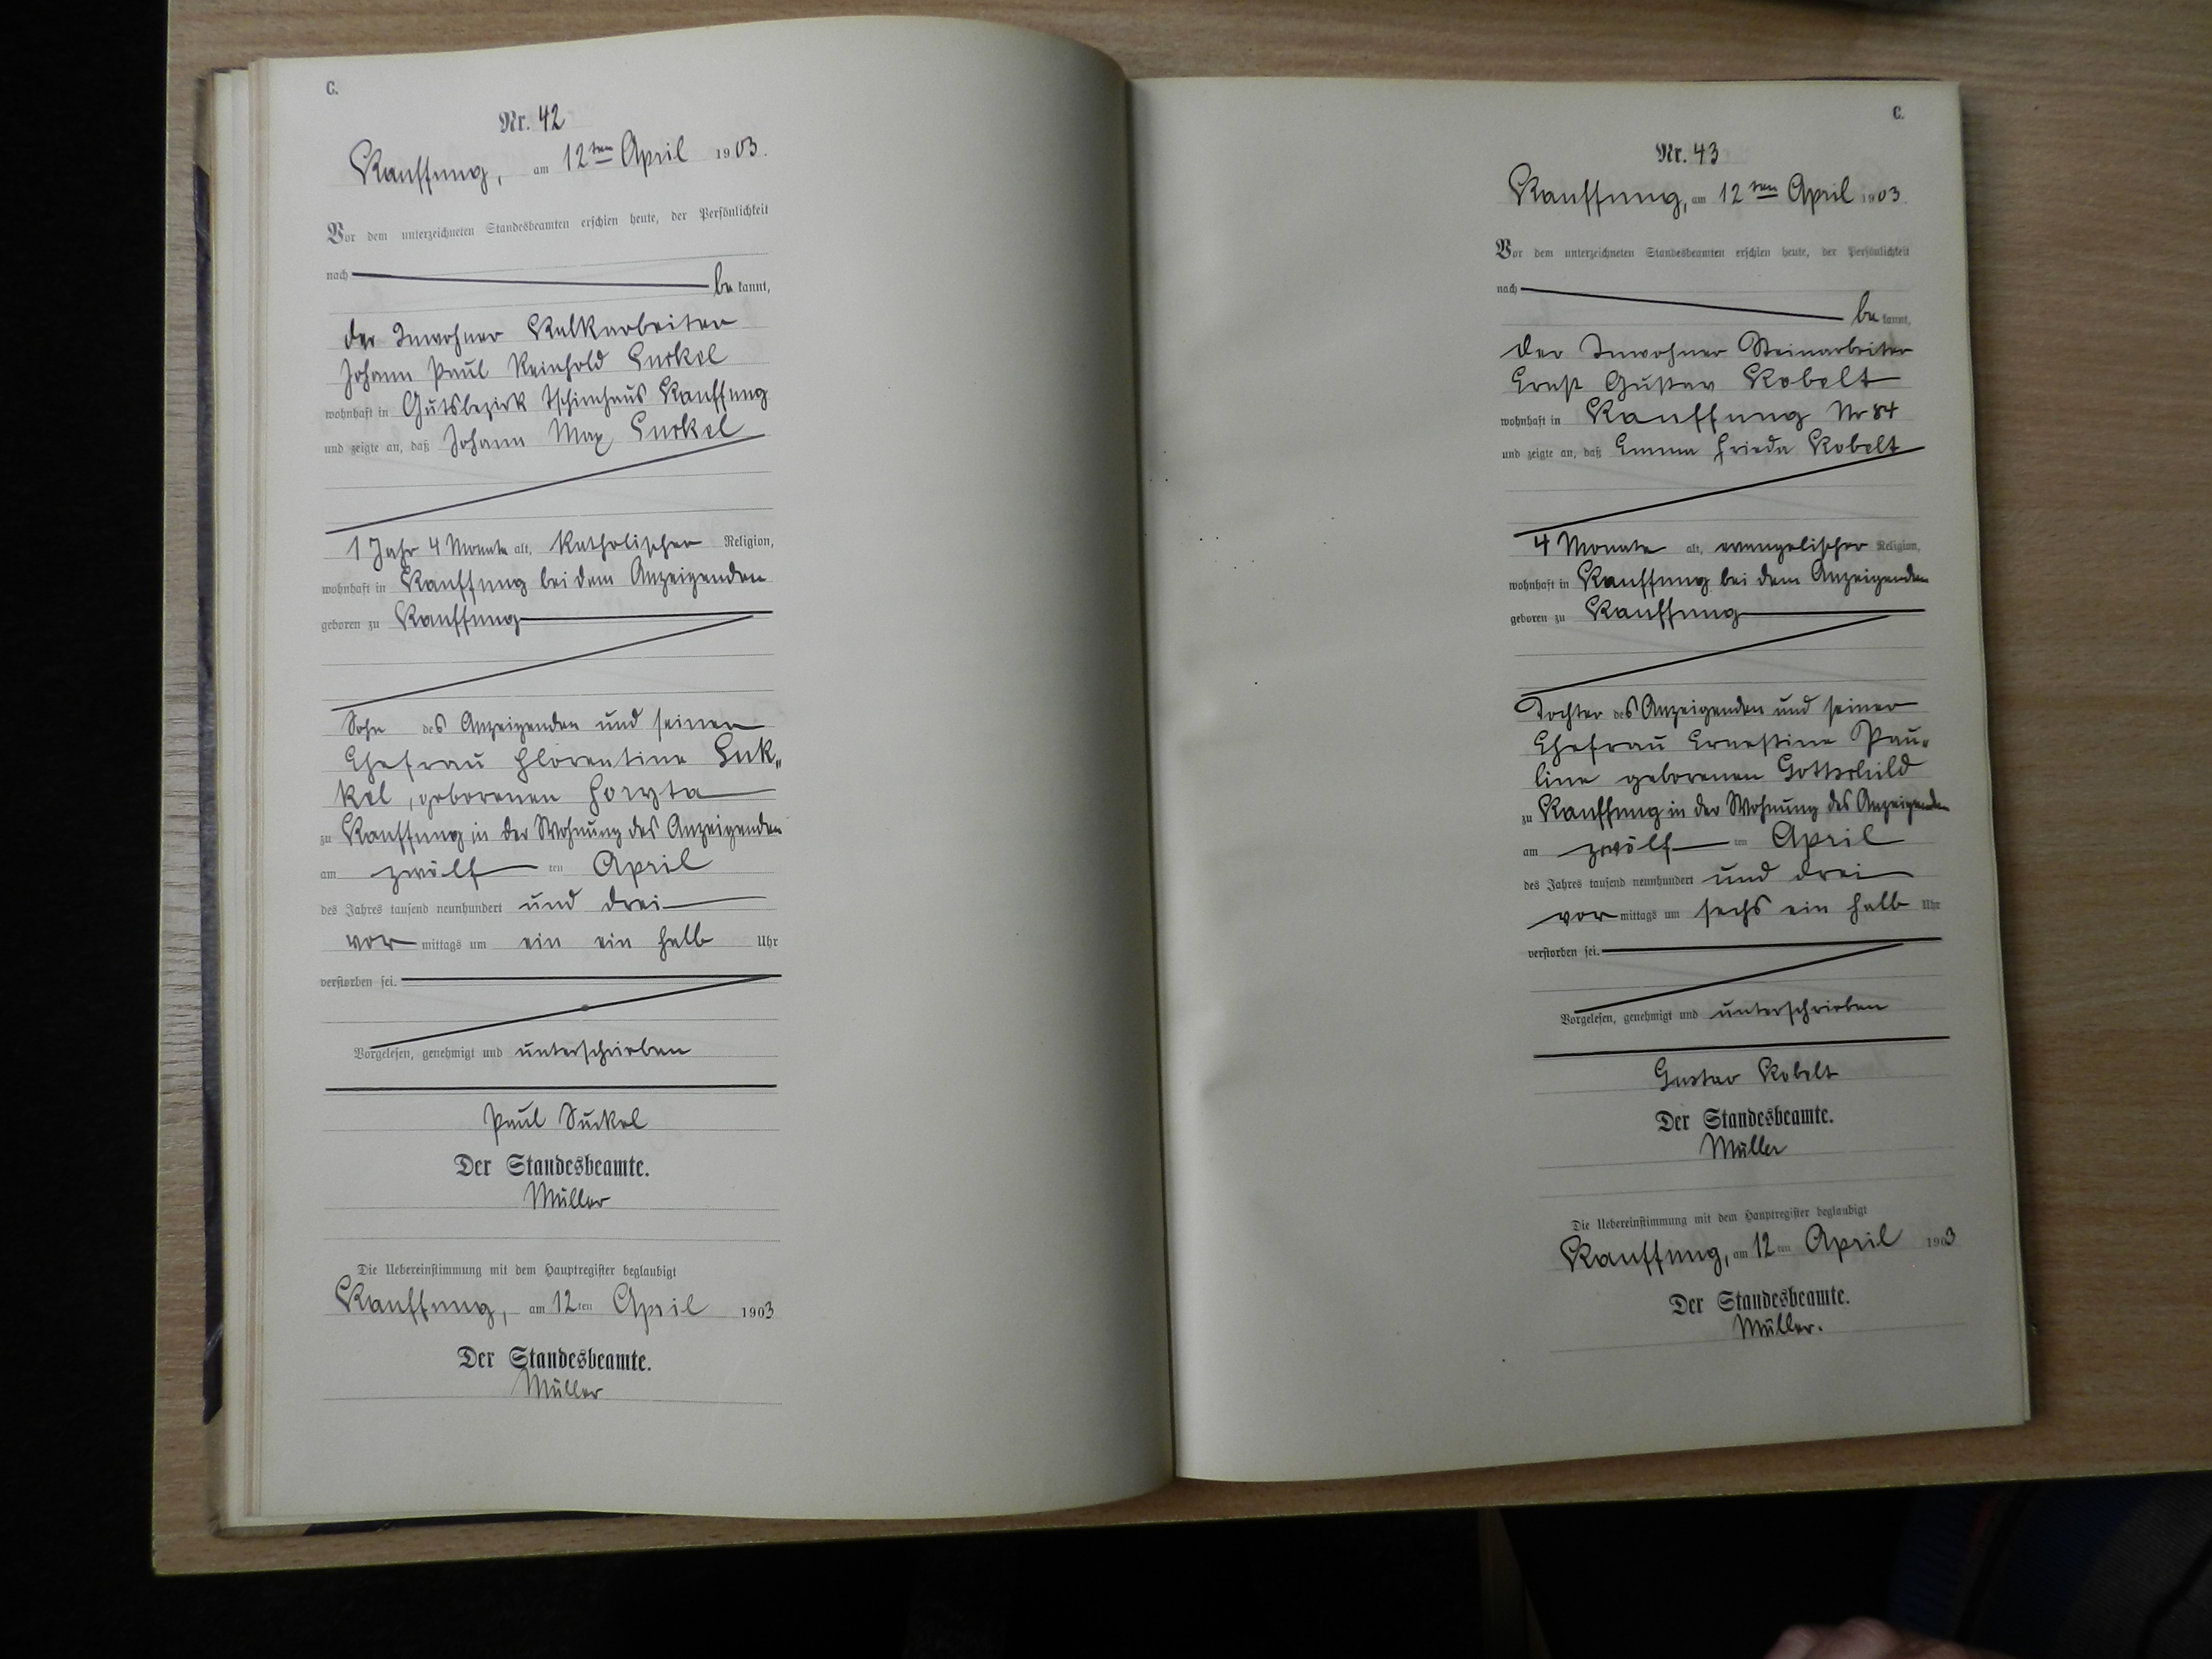 C.
Nr. 42
Kauffung, am 12ten April 1903.
Vor dem unterzeichneten Standesbeamten erschien heute, der Persönlichkeit
nach bekannt,
der Inwohner Kalkarbeiter
Johann Paul Reinhold Suckel
wohnhaft in Gutsbezirk Tschirnhaus Kauffung
und zeigte an, daß Johann Max Suckel
1 Jahr 4 Monate alt, katholischer Religion,
wohnhaft in Kauffung bei dem Anzeigenden
geboren zu Kauffung
Sohn des Anzeigenden und seiner
Ehefrau Florentine Suk„
kel, geborenen
zu Kauffung in der Wohnung des Anzeigenden
am zwölf ten April
des Jahres tausend neunhundert und drei
vor mittags um ein ein halb Uhr
verstorben sei.
Vorgelesen, genehmigt und unterschrieben
Paul Suckel
Der Standesbeamte.
Müller
Die Uebereinstimmung mit dem Hauptregister beglaubigt
Kauffung, am 12ten April 1903
Der Standesbeamte.
Müller
C.
Nr. 43
Kauffung, am 12ten April 1903.
Vor dem unterzeichneten Standesbeamten erschien heute, der Persönlichkeit
nach bekannt,
der Inwohner Steinarbeiter
Ernst Gustav Kobelt
wohnhaft in Kauffung Nr 84
und zeigte an, daß Emma Frieda Kobelt
4 Monate alt, evangelischer Religion,
wohnhaft in Kauffung bei dem Anzeigenden
geboren zu Kauffung
Tochter des Anzeigenden und seiner
Ehefrau Ernestine Pau-
line geborenen Gottschild
zu Kauffung in der Wohnung des Anzeigenden
am zwölf ten April
des Jahres tausend neunhundert und drei
vor mittags um sechs ein halb Uhr
verstorben sei.
Vorgelesen, genehmigt und unterschrieben
Gustav Kobelt
Der Standesbeamte.
Müller
Die Uebereinstimmung mit dem Hauptregister beglaubigt
Kauffung, am 12ten April 1903
Der Standesbeamte.
Müller.